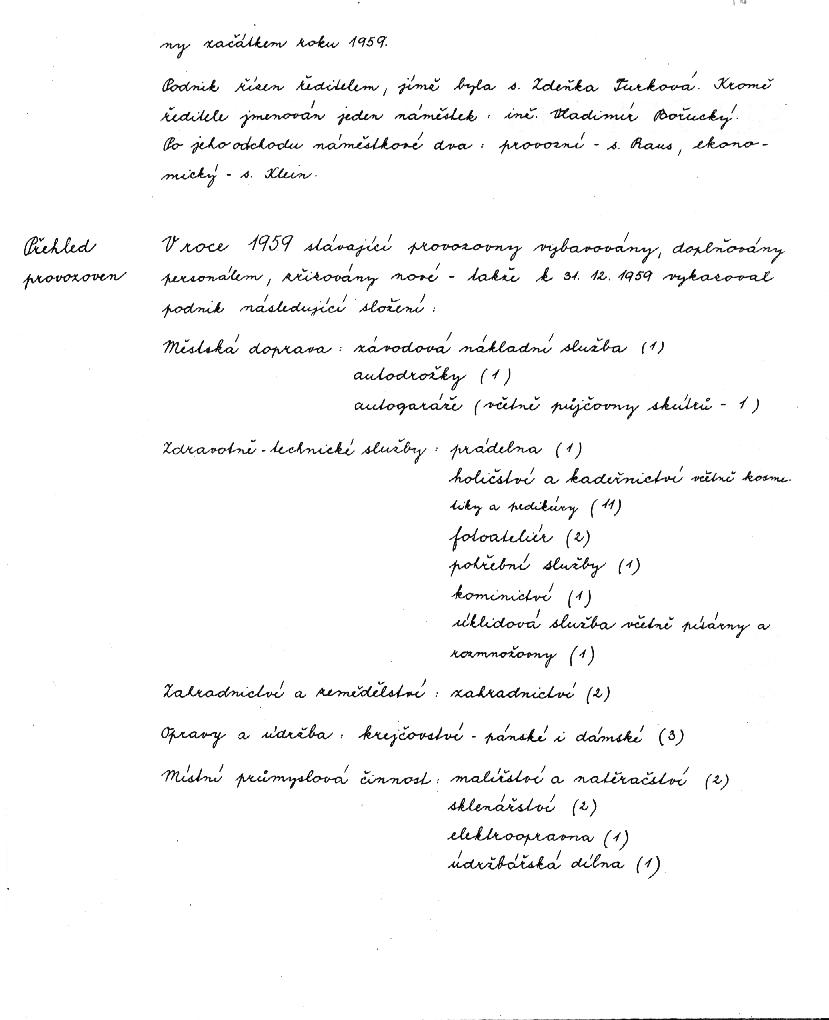 ny začátkem roku 1959.
Podnik řízen ředitelem, jímž byla s. Zdeňka Turková. Kromě
ředitele jmenován jeden náměstek: inž. Vladimír Bořucký.
Po jeho odchodu náměstkové dva: provozní - s. Raus, ekono-
mický - s. Klein.
Přehled
provozoven
V roce 1959 stávající provozovny vybavovány, doplňovány
personálem, zřizovány nové - takže k 31. 12. 1959 vykazoval
podnik následující složení:
Městská doprava: závodová nákladní služba (1)
autodrožky (1)
autogaráže (včetně půjčovny skútrů - 1)
Zdravotně-technické služby: prádelna (1)
holičství a kadeřnictví včetně kosme-
tiky a pedikúry (11)
fotoateliér (2)
pohřební služby (1)
kominictví (1)
úklidová služba včetně písárny a
rozmnožovny (1)
Zahradnictví a zemědělství: zahradnictví (2)
Opravy a údržba: krejčovství - pánské i dámské (3)
Místní průmyslová činnost: malířství a natěračství (2)
sklenářství (2)
elektroopravna (1)
údržbářská dílna (1)